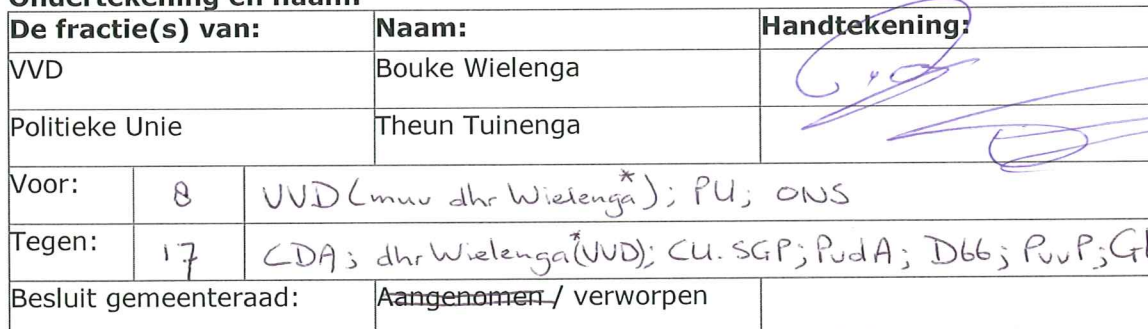 De fractie(s) van: Naam: Handtekening:
VVD Bouke Wielenga
Politieke Unie Theun Tuinenga
Voor: 8 VVD (muv dhr Wielenga*); PU; ONS
Tegen: 17 CDA; dhr Wielenga* (VVD); CU.SGP; PvdA; D66; PvvP;
Besluit gemeenteraad: Aangenomen / verworpen